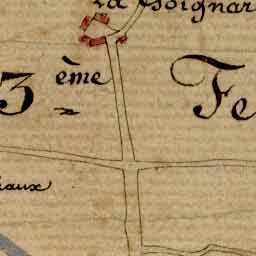 la Poignar
3 ème Fe
eaux